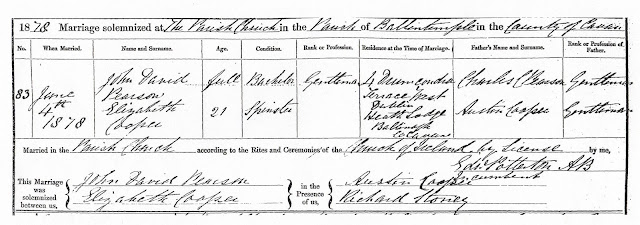 1878 Marriage solemnized at The Parish Church in the Parish of Ballintemple in the County of Cavan
No. When Married. Name and Surname. Age. Condition. Rank or Profession. Residence at the Time of Marriage. Father's Name and Surname. Rank or Profession of Father.
83 June 4th 1878
John David Pearson full Bachelor Gentleman 4 Drumcondra Terrace West Dublin Charles Pearson Gentleman
Elizabeth Cooper 21 Spinster Heath Lodge Co Cavan Austin Cooper Gentleman
Married in the Parish Church according to the Rites and Ceremonies of the Church of Ireland by License by me,
Edw. Potterton AB
Incumbent
This Marriage was solemnized between us, John David Pearson
Elizabeth Cooper
in the Presence of us, Austin Cooper
Richard Stoney